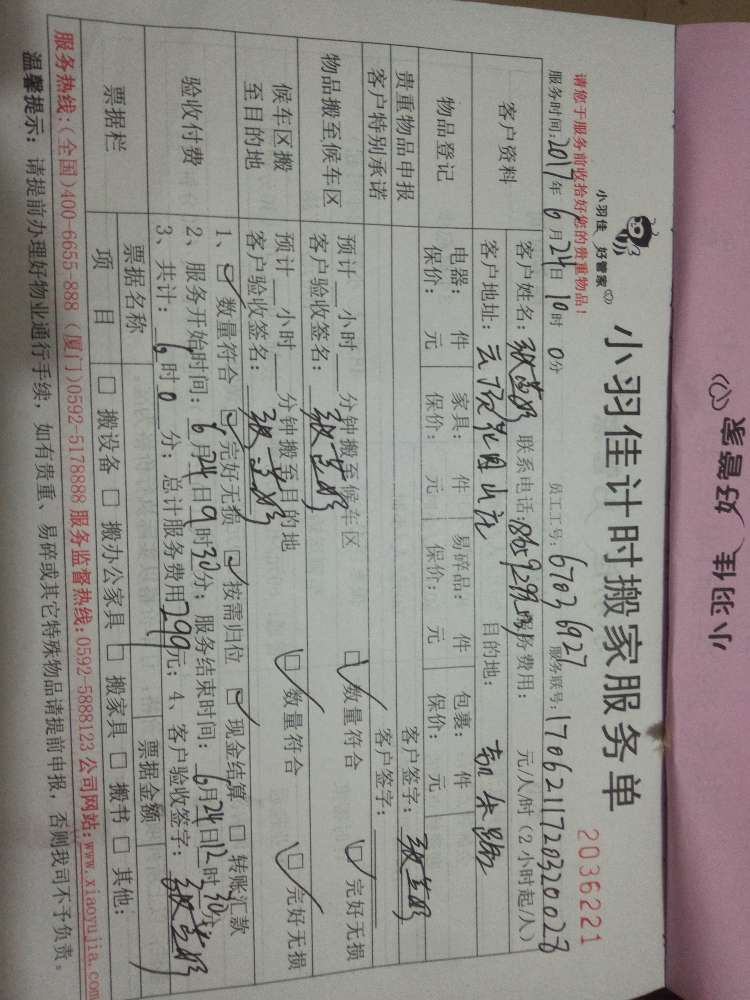 家管好好
小羽佳
小羽佳 好管家
小羽佳计时搬家服务单
2036221
请您于服务前收拾好您的贵重物品！
服务时间:2017年6月24日10时0分 员工工号:6703 6927 服务联号:170621172032002
客户资料
客户姓名: 联系电话: 服务费用: 元/人/时(2小时起/人)
客户地址: 目的地:
物品登记
电器: 件 家具: 件 易碎品: 件 包裹: 件
保价: 元 保价: 元 保价: 元 保价: 元
贵重物品申报 客户签字:
客户特别承诺 客户签字:
物品搬至候车区
预计__小时__分钟搬至候车区 ☑数量符合 ☑完好无损
客户验收签名:
候车区搬至目的地
预计__小时__分钟搬至目的地 ☑数量符合 ☑完好无损
客户验收签名:
验收付费
1、☑数量符合 ☑完好无损 ☑按需归位 ☑现金结算 □转账汇款
2、服务开始时间:6月24日9时30分; 服务结束时间:6月24日12时30分
3、共计:6时0分; 总计服务费用299元; 4、客户验收签字:
票据栏
票据名称 票据金额
项目 □搬设备 □搬办公家具 □搬家具 □搬书 □其他:
服务热线:(全国)400-6655-888 (厦门)0592-5178888 服务监督热线:0592-5888123 公司网站:www.xiaoyujia.com
温馨提示: 请提前办理好物业通行手续, 如有贵重、易碎或其它特殊物品请提前申报, 否则我司不予负责。